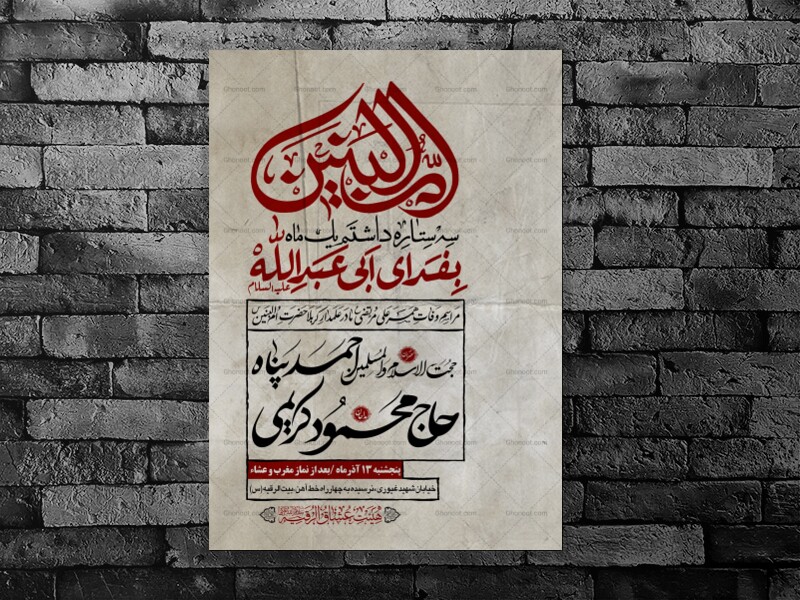 ام البنین
سه ستاره داشتم یک ماه
بفدای ابی عبدالله
علیه السلام
مراسم وفات همسر علی مرتضی مادر علمدار کربلا حضرت ام البنین
حجت الاسلام والمسلمین احمد پناه
حاج محمود کریمی
پنجشنبه ۱۳ آذرماه / بعد از نماز مغرب و عشاء
خیابان شهید غیوری، نرسیده به چهارراه خط آهن، بیت الرقیه (س)
هیئت عشاق الرقیه
Ghonoot.com